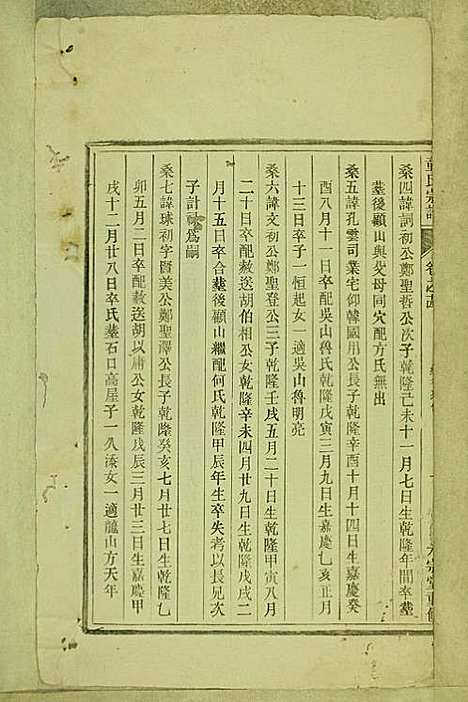 桑四諱詞初公鄭聖哲公次子乾隆己未十一月七日生乾隆年間卒墓
墓後顯山與父母同穴配方氏無出
桑五諱孔雲司業宅仰韓國用公長子乾隆辛酉十月十四日生嘉慶癸
酉八月十一日卒配吳山魯氏乾隆戊寅三月九日生嘉慶乙亥正月
十三日卒子一恒起女一適吳山魯明亮
桑六諱文初公鄭聖登公三子乾隆壬戌五月二十日生乾隆甲寅八月
二十日卒配赦送胡伯相公女乾隆辛未四月廿九日生乾隆戊戌二
月十五日卒合墓後顯山繼配何氏乾隆甲辰年生卒失考以長兄次
子計為嗣
桑七諱球初字公鄭聖澤公長子乾隆癸亥七月廿七日生乾隆乙
卯五月二日卒配赦送胡以甫公女乾隆戊辰三月廿三日生嘉慶甲
戌十二月廿八日卒氏墓石口高屋子一久湊女一適龍山方天年